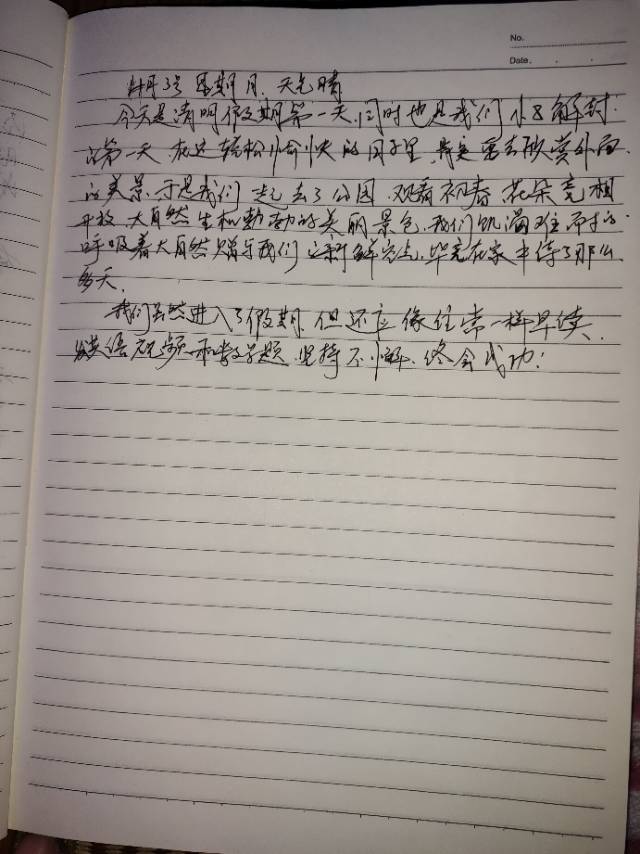 No.
Date.
4月3号 星期日. 天气晴
今天是清明假期第一天,同时也是我们小区解封
的第一天 在这轻松愉快的日子里, 要去欣赏外面
的美景,于是我们一起去了公园 观看初春 花朵竞相
开放 大自然生机勃勃的美丽景色,我们饥渴难耐的
呼吸着大自然赐予我们的新鲜空气,毕竟在家中待了那么
多天.
我们虽然进入了假期,但还应像往常一样早读,
英语视频和数学题,坚持不懈,终会成功!